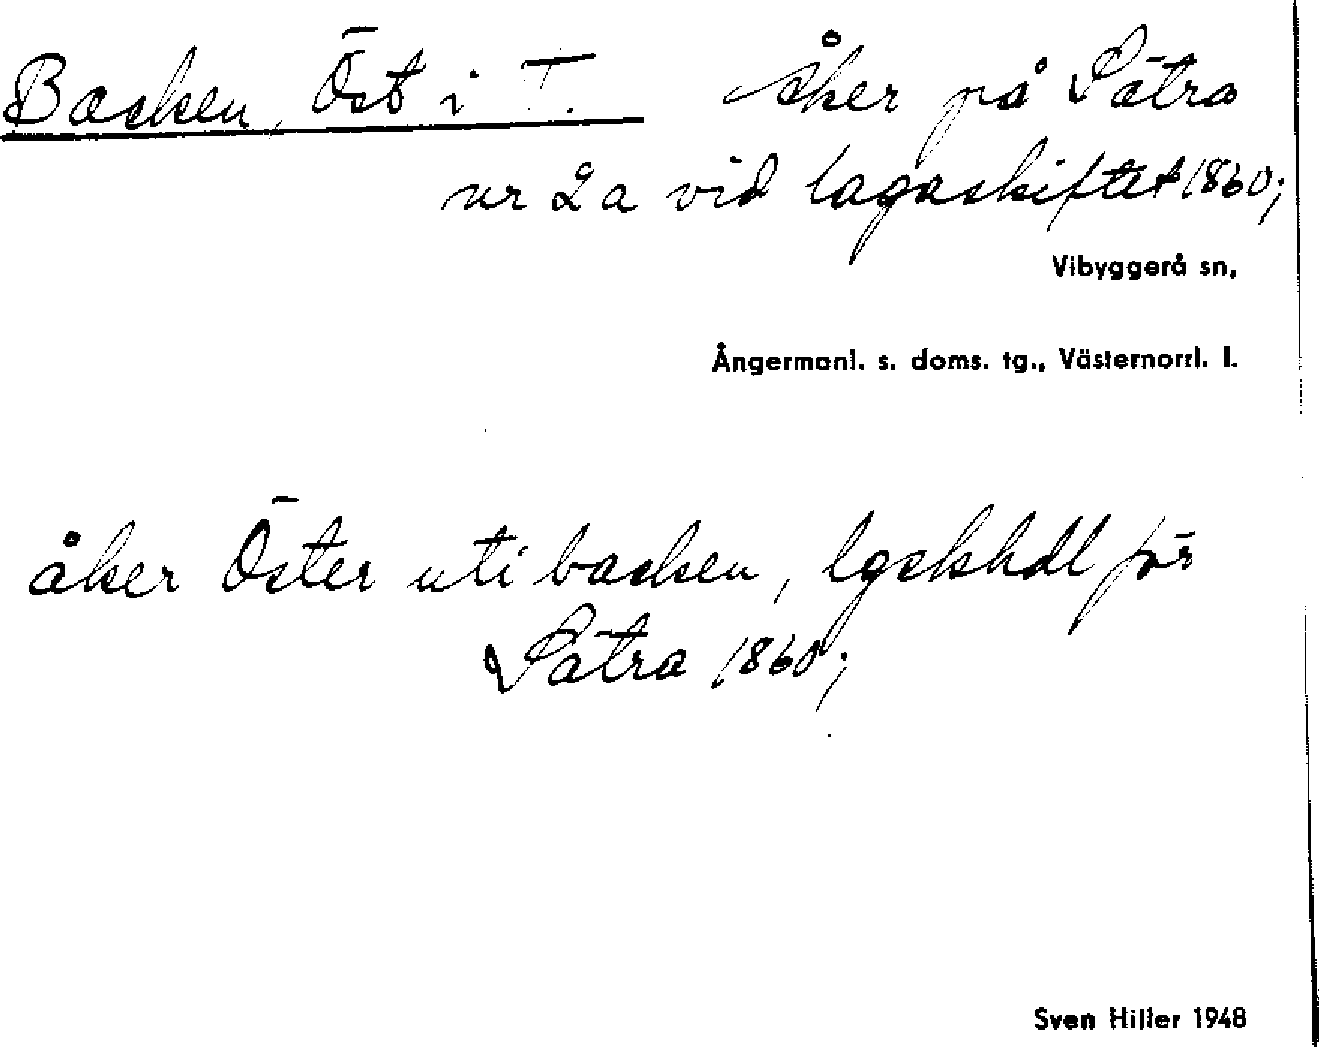 Backen, Öst i T. åker på Sätra
nr 2a vid lagaskiftet 1860;
Vibyggerå sn,
Ångermanl. s. doms. tg., Västernorrl. l.
åker Öster uti backen, lgskhdl för
Sätra 1860;
Sven Hiller 1948